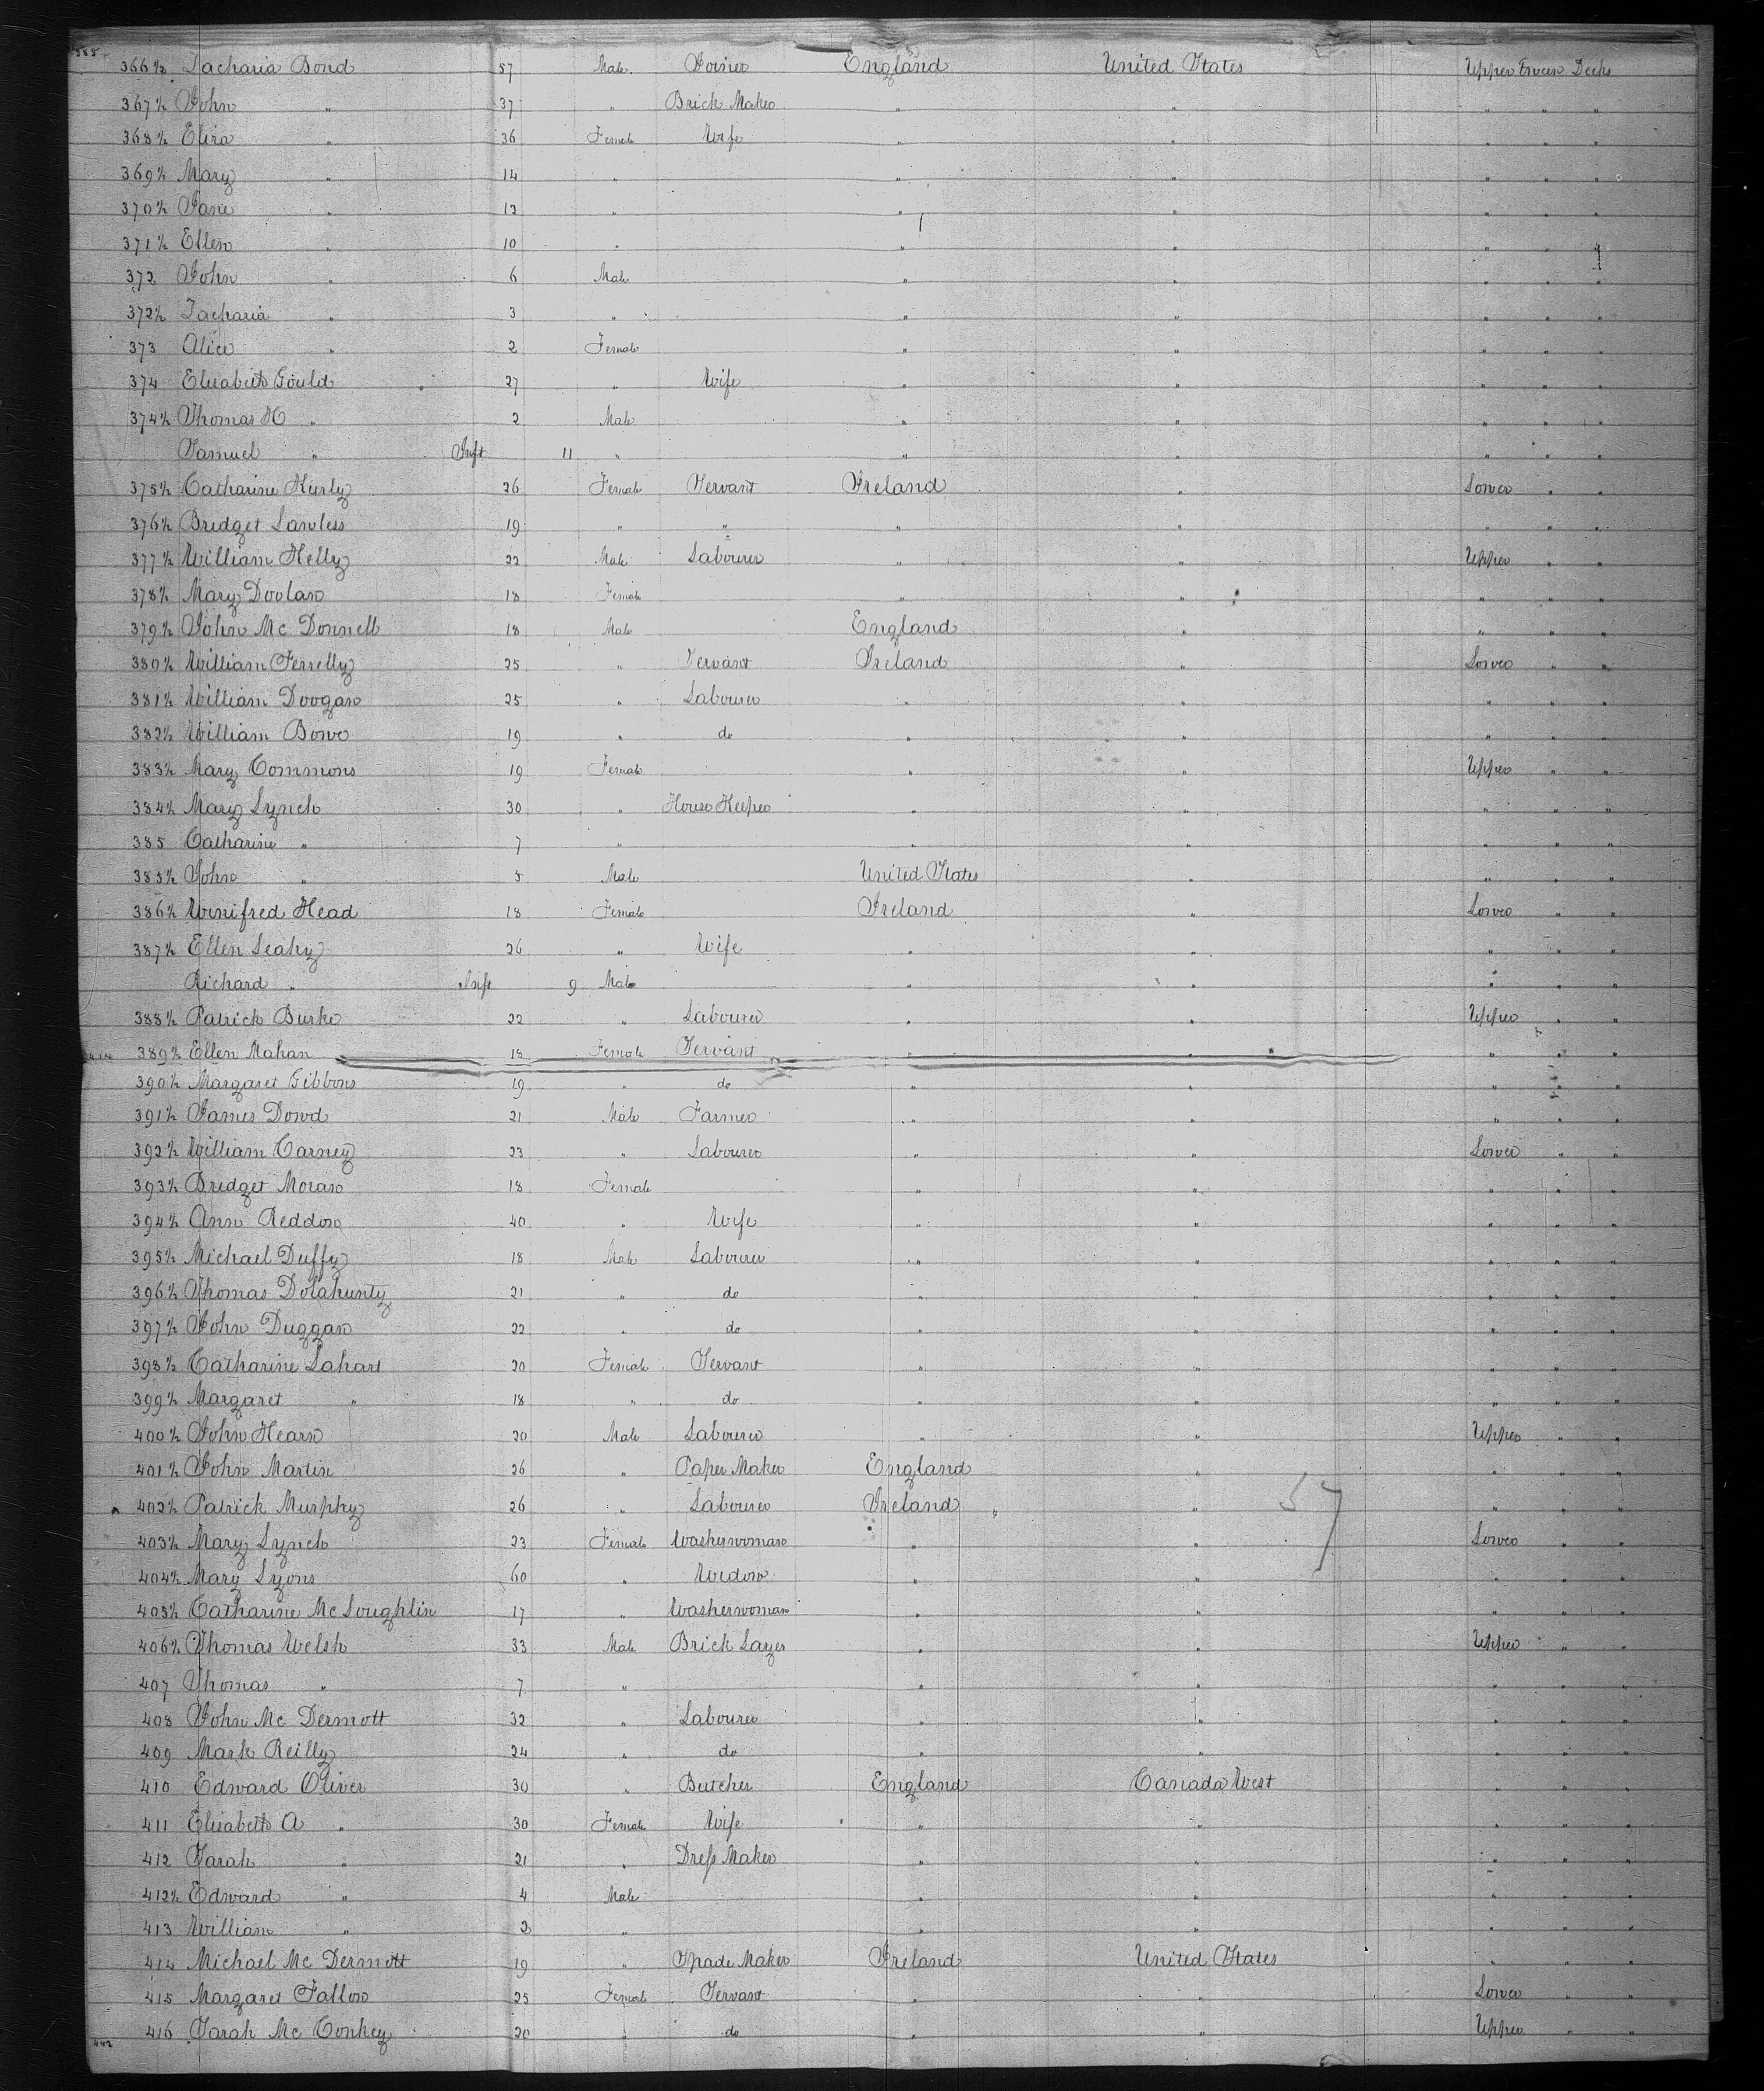 366½ Zacharia Bond 57 Male Joiner England United States Upper Tween Decks
367½ John " 37 " Brick Maker " " " " "
368½ Eliza " 36 Female Wife " " " " "
369½ Mary " 14 " " " " " "
370½ Jane " 12 " " " " " "
371½ Ellen " 10 " " " " " "
372 John " 6 Male " " " " "
372½ Zacharia " 3 " " " " " "
373 Alice " 2 Female " " " " "
374 Elizabeth Gould 27 " Wife " " " " "
374½ Thomas H " 2 Male " " " " "
Samuel " Inft 11 " " " " " "
375½ Catharine Hurly 26 Female Servant Ireland " Lower " "
376½ Bridget Lawless 19 " " " " " " "
377½ William Kelly 22 Male Labourer " " Upper " "
378½ Mary Doolan 18 Female " " " " "
379½ John Mc Donnell 18 Male England " " " "
380½ William Ferrelly 25 " Servant Ireland " Lower " "
381½ William Doogan 25 " Labourer " " " " "
382½ William Bowe 19 " do " " " " "
383½ Mary Commons 19 Female " " Upper " "
384½ Mary Lynch 30 " House Keeper " " " " "
385 Catharine " 7 " " " " " "
385½ John " 5 Male United States " " " "
386½ Winifred Head 18 Female Ireland " Lower " "
387½ Ellen Leahy 26 " Wife " " " " "
Richard " Inft 9 Male " " " " "
388½ Patrick Burke 22 " Labourer " " Upper " "
389½ Ellen Mahan 18 Female Servant " " " " "
390½ Margaret Gibbons 19 " do " " " " "
391½ James Dowd 21 Male Farmer " " " " "
392½ William Carney 23 " Labourer " " Lower " "
393½ Bridget Moran 18 Female " " " " "
394½ Ann Reddon 40 " Wife " " " " "
395½ Michael Duffy 18 Male Labourer " " " " "
396½ Thomas Dolahunty 21 " do " " " " "
397½ John Duggan 22 " do " " " " "
398½ Catharine Lahart 20 Female Servant " " " " "
399½ Margaret " 18 " do " " " " "
400½ John Hearn 20 Male Labourer " " Upper " "
401½ John Martin 26 " Paper Maker England " " " "
402½ Patrick Murphy 26 " Labourer Ireland " " " "
57
403½ Mary Lynch 23 Female Washerwoman " " Lower " "
404½ Mary Lyons 60 " Widow " " " " "
405½ Catharine Mc Loughlin 17 " Washerwoman " " " " "
406½ Thomas Welsh 33 Male Brick Layer " " Upper " "
407 Thomas " 7 " " " " " "
408 John Mc Dermott 32 " Labourer " " " " "
409 Mark Reilly 24 " do " " " " "
410 Edward Oliver 30 " Butcher England Canada West " " "
411 Elizabeth A " 30 Female Wife " " " " "
412 Sarah " 21 " Dress Maker " " " " "
412½ Edward " 4 Male " " " " "
413 William " 2 " " " " " "
414 Michael Mc Dermott 19 " Spade Maker Ireland United States " " "
415 Margaret Fallon 25 Female Servant " " Lower " "
416 Sarah Mc Conkey 20 " do " " Upper " "
442